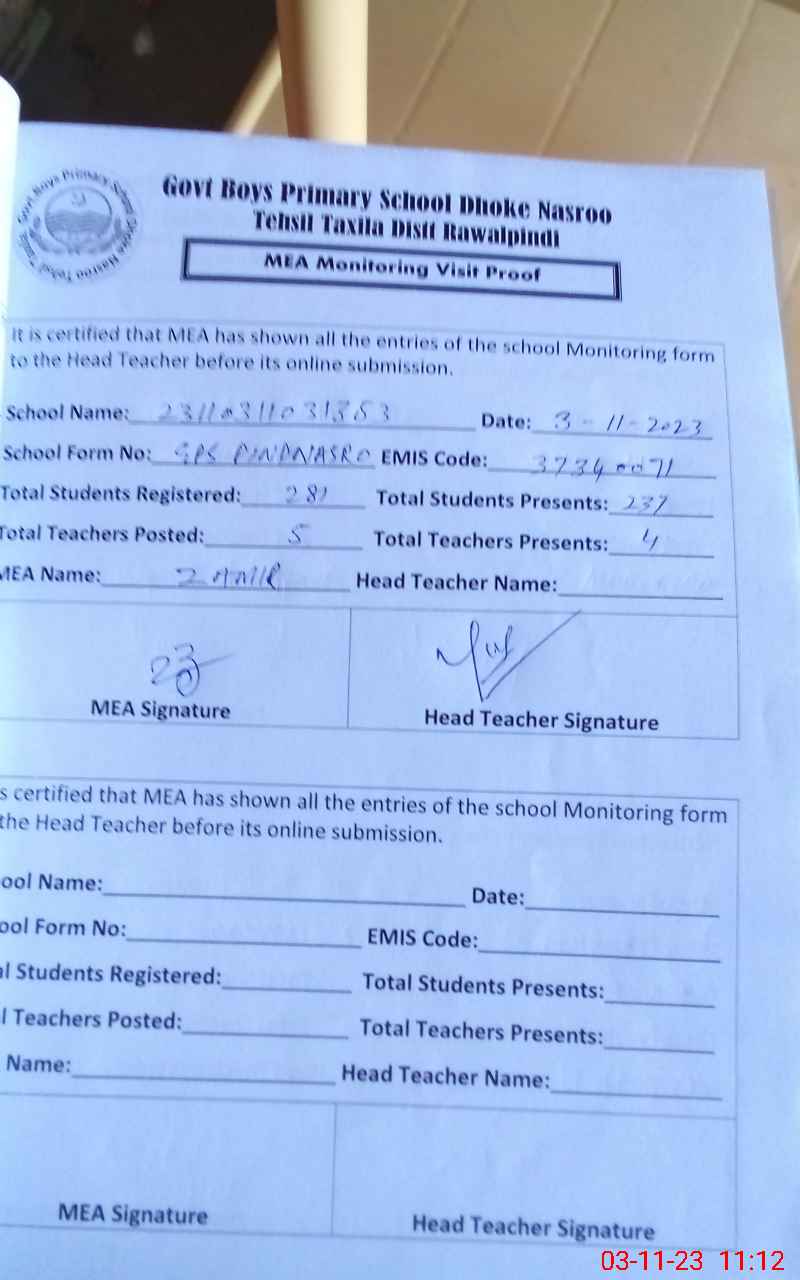 Govt Boys Primary School Dhoke Nasroo
Tehsil Taxila Distt Rawalpindi
MEA Monitoring Visit Proof
It is certified that MEA has shown all the entries of the school Monitoring form
to the Head Teacher before its online submission.
School Name: Date: 3-11-2023
School Form No: GPS EMIS Code: 37340071
Total Students Registered: 281 Total Students Presents: 237
Total Teachers Posted: 5 Total Teachers Presents: 4
MEA Name: ZAMIR Head Teacher Name:
MEA Signature Head Teacher Signature
s certified that MEA has shown all the entries of the school Monitoring form
the Head Teacher before its online submission.
ool Name: Date:
ool Form No: EMIS Code:
al Students Registered: Total Students Presents:
l Teachers Posted: Total Teachers Presents:
Name: Head Teacher Name:
MEA Signature Head Teacher Signature
03-11-23 11:12